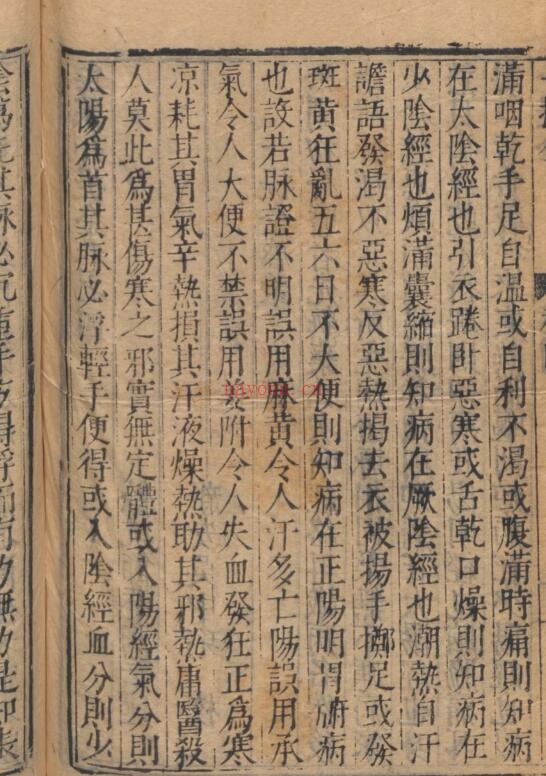 滿咽乾手足自溫或自利不渴或腹滿時痛則知病
在太陰經也引衣踡卧惡寒或舌乾口燥則知病在
少陰經也煩滿囊縮則知病在厥陰經也潮熱自汗
譫語發渴不惡寒反惡熱揭去衣被揚手擲足或發
斑黃狂亂五六日不大便則知病在正陽明胃腑病
也設若脉證不明誤用麻黃令人汗多亡陽誤用承
氣令人大便不禁誤用姜附令人失血發狂正爲寒
凉耗其胃氣辛熱損其汗液燥熱助其邪熱庸醫殺
人莫此爲甚傷寒之邪實無定體或入陽經氣分則
太陽爲首其脉必浮輕手便得或入陰經血分則少
nayona.cn